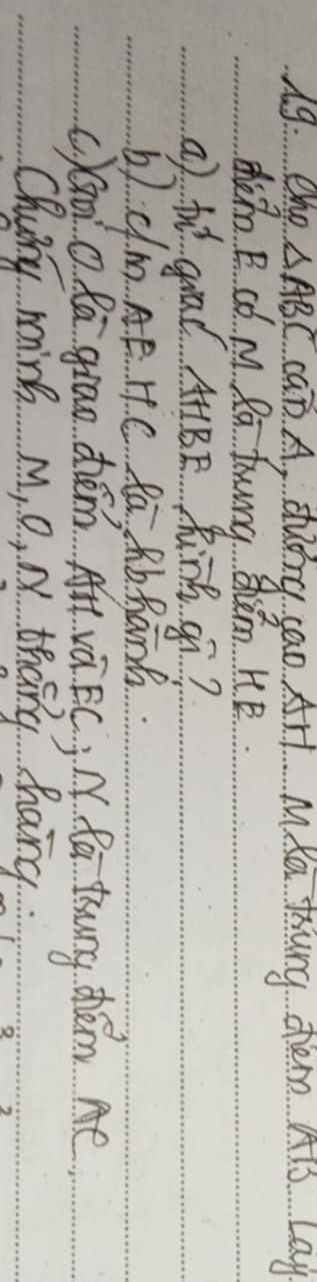 19. Cho △ABC cân A, đường cao AH. M là trung điểm AB Lấy
điểm E có M là trung điểm HE.
a) tứ giác AHBE hình gì?
b) c/m AEHC là hbhành.
c) Gọi O là giao điểm AH và EC, N là trung điểm AC,
Chứng minh M, O, N thẳng hàng.